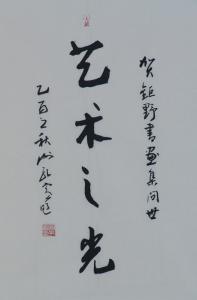 贺钜野书画集问世
艺术之光
乙酉之秋